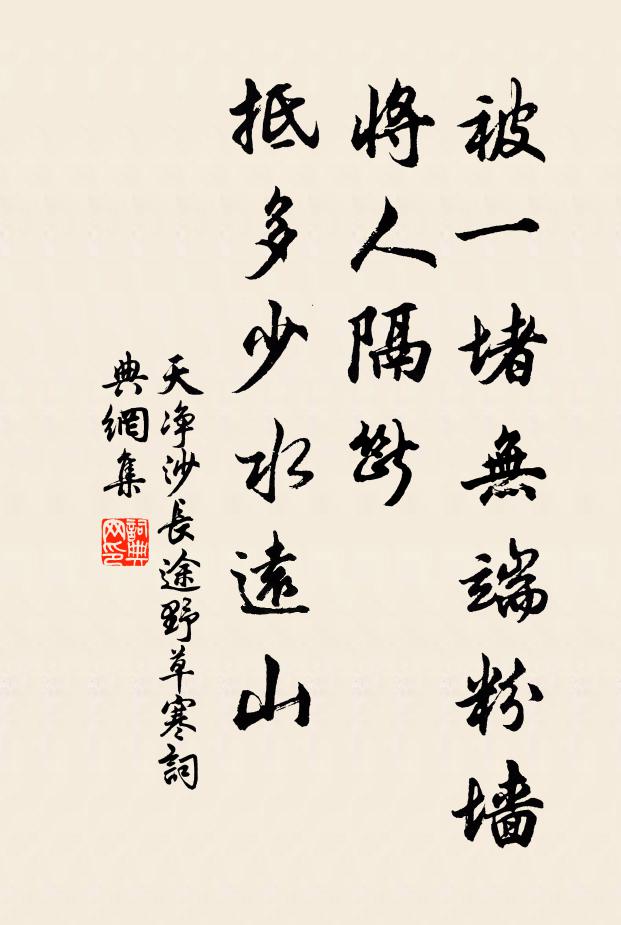 被一堵無端粉墙
將人隔斷
抵多少水遠山
天净沙長途野草寒詞
典網集
詞典
网印